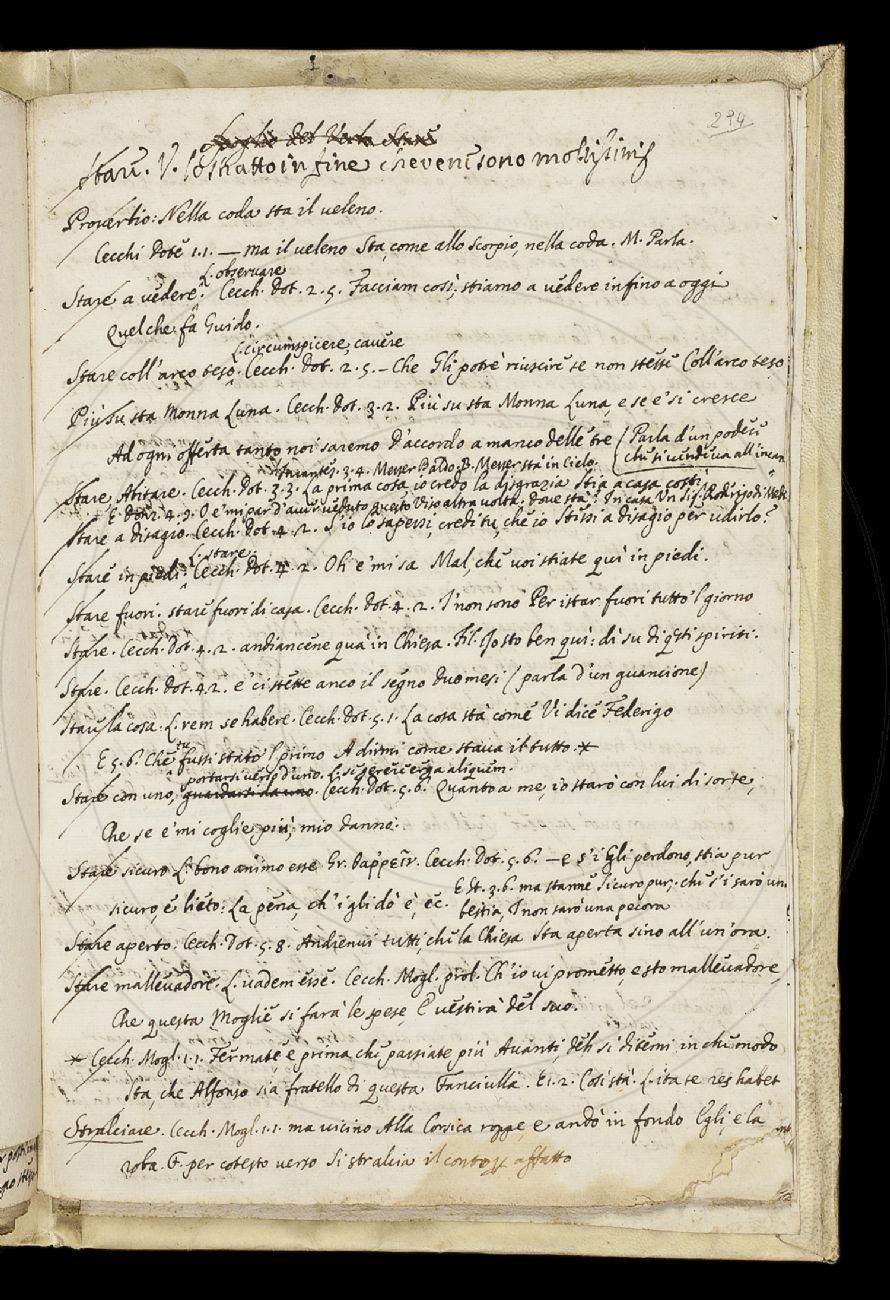 294
Spoglio del Verbo Stare
Stare. V. lo stratto in fine che ven' sono moltissimi
Proverbio: Nella coda sta il veleno.
Cecchi Dote 1.1. — ma il veleno Sta, come allo scorpio, nella coda. M. Parla.
L. observare
Stare a vedere. Cecch. Dot. 2.5. Facciam così; stiamo a vedere infino a oggi
Quel che fa Guido.
L. circumspicere, cavere
Stare coll'arco teso. Cecch. Dot. 2.5. — Che Gli potrè riuscire se non stesse Coll'arco teso
Più su sta Monna Luna. Cecch. Dot. 3.2. Più su sta Monna Luna, e se e' si cresce
Ad ogni offerta tanto noi saremo D'accordo a manco delle tre (Parla d'un podere
che si vendeva all'incan
3.4. Messer Baldo. B. Messer stà in Cielo.
Stare Abitare. Cecch. Dot. 3.3. La prima cosa io credo la disgrazia Stia a casa costì
E Dot. 4.9. O e' mi par d'aver veduto questo Viso altra volta. Dove sta? In casa Un Sif. Rodrigo di
Stare a disagio. Cecch. Dot. 4.2. S'io lo sapessi, credi tu, che io Stessi a disagio per udirlo?
L. stare
Stare in piedi. Cecch. Dot. 4.2. Oh e' mi sa Mal, che voi stiate quì in piedi.
Stare fuori. stare fuori di casa. Cecch. Dot. 4.2. I' non sono Per istar fuori tutto 'l giorno
Stare. Cecch. Dot. 4.2. andiancene qua in Chiesa. Fil. Io sto ben quì: dì su di q.sti spiriti.
Stare. Cecch. Dot. 4.2. e' ci stette anco il segno duo mesi (parla d'un guancione)
Stare la cosa. L. rem se habere. Cecch. Dot. 5.1. La cosa stà come Vi dice Federigo
E 5.6. Che tu fussi stato 'l primo A dirmi come stava il tutto. *
portarsi verso d'uno. L. se gerere erga aliquem.
Stare con uno, guardarsi da uno. Cecch. Dot. 5.6. Quanto a me, io starò con lui di sorte,
Che se e' mi coglie più, mio danno.
Stare sicuro L. bono animo esse Gr. θαρρεῖν. Cecch. Dot. 5.6. — e s'i' Gli perdono, stia pur
sicuro, e lieto: La pena, ch'i' gli dò è, ec.
E Dt. 3.6. ma stanne Sicuro pur, che s'i' sarò una
bestia, I' non sarò una pecora
Stare aperto. Cecch. Dot. 5.8. Andienvi tutti, che la Chiesa Sta aperta sino all'un'ora.
Stare mallevadore. L. vadem esse. Cecch. Mogl. prol. Ch'io vi prometto, e sto mallevadore,
Che questa Moglie si farà le spese, E vestirà del suo.
* Cecch. Mogl. 1.1. Fermate, e prima che passiate più Avanti, deh sì ditemi in che modo
Sta, che Alfonso sia fratello di questa Fanciulla. E 1.2. Così stà. L. ita se res habet
Stralciare. Cecch. Mogl. 1.1. ma vicino Alla Corsica roppe, e andò in fondo Egli, e la
roba. G. per cotesto verso Si stralcia il conto affatto